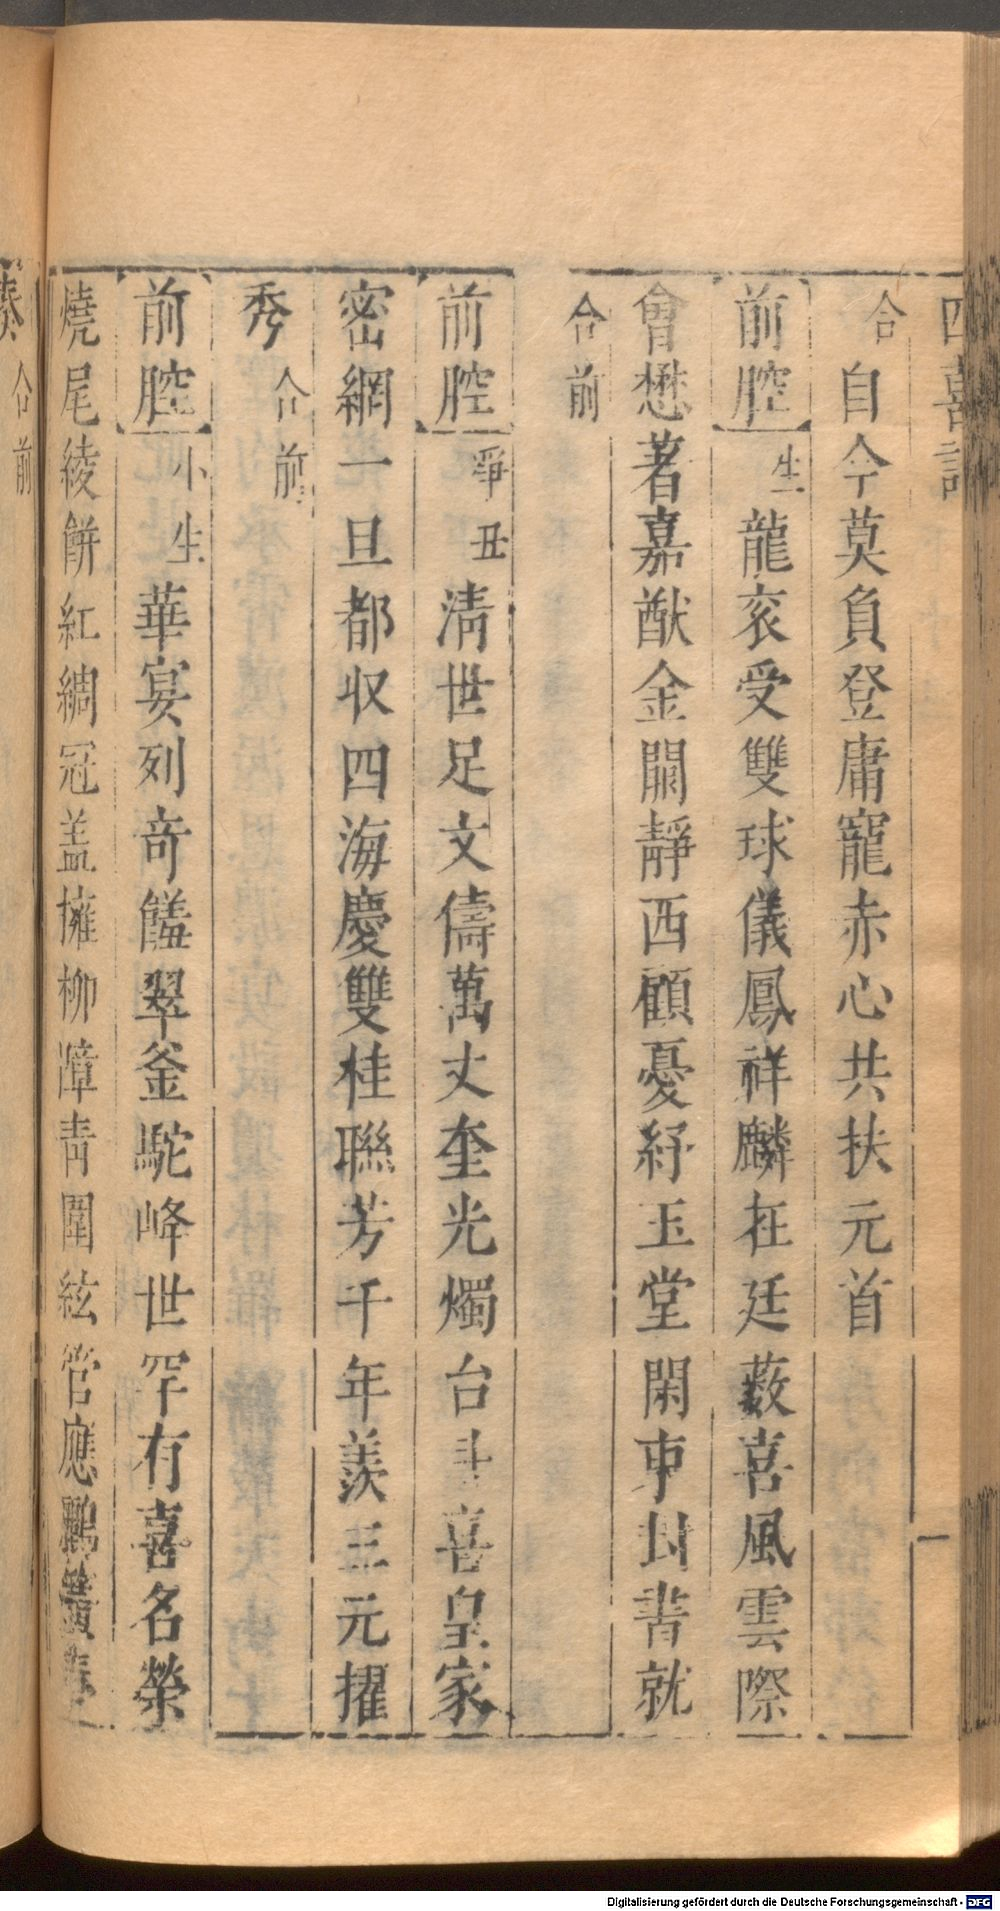 四喜記
合 自今莫負登庸寵赤心共扶元首
前腔 生 龍衮受雙球儀鳳祥麟在廷藪喜風雲際
會懋著嘉猷金闕靜西顧憂紓玉堂閑東封書就
合前
前腔 爭丑 清世足文儔萬丈奎光燭台斗喜皇家
密網一旦都収四海慶雙桂聯芳千年羨三元擢
秀 合前
前腔 小生 華宴列竒饈翠釜駝峰世罕有喜名榮
燒尾綾餅紅綢冠盖擁柳障青圍絃管應鸝
合前
Digitalisierung gefördert durch die Deutsche Forschungsgemeinschaft - DFG